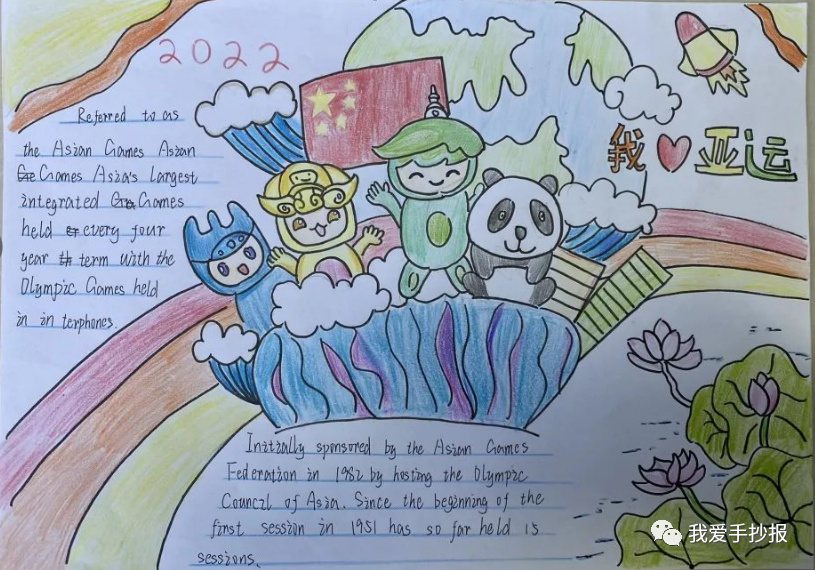 2022
我 亚运
Referred to as
the Asian Games Asian
Games Asia's largest
integrated Games
held every four
year term with the
Olympic Games held
in in terphones.
Initially sponsored by the Asian Games
Federation in 1982 by hosting the Olympic
Council of Asia. Since the beginning of the
first session in 1951 has so far held 15
sessions.
我爱手抄报